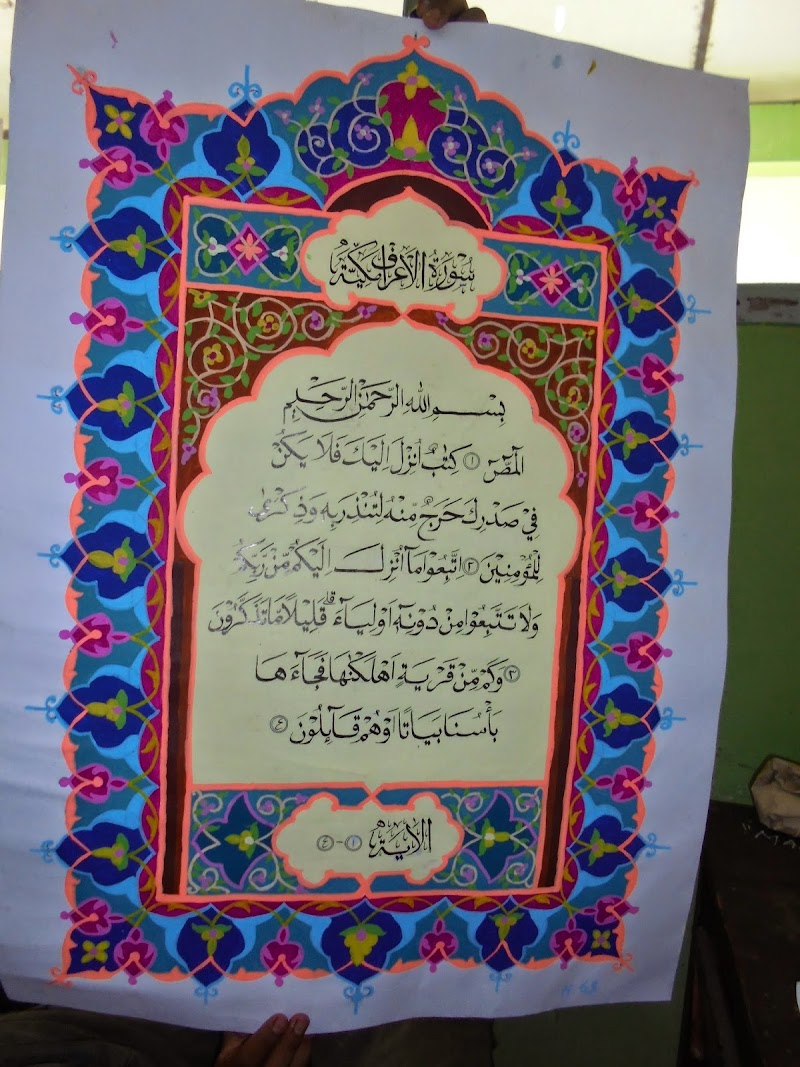 سُوْرَةُ الْاَعْرَافِ مَكِّيَّةٌ
بِسْمِ اللهِ الرَّحْمٰنِ الرَّحِيْمِ
الۤمّۤصۤ ۝١ كِتٰبٌ اُنْزِلَ اِلَيْكَ فَلَا يَكُنْ
فِيْ صَدْرِكَ حَرَجٌ مِّنْهُ لِتُنْذِرَ بِهٖ وَذِكْرٰى
لِلْمُؤْمِنِيْنَ ۝٢ اِتَّبِعُوْا مَآ اُنْزِلَ اِلَيْكُمْ مِّنْ رَّبِّكُمْ
وَلَا تَتَّبِعُوْا مِنْ دُوْنِهٖٓ اَوْلِيَآءَ ۗ قَلِيْلًا مَّا تَذَكَّرُوْنَ
۝٣ وَكَمْ مِّنْ قَرْيَةٍ اَهْلَكْنٰهَا فَجَآءَهَا
بَأْسُنَا بَيَاتًا اَوْهُمْ قَآئِلُوْنَ ۝٤
الاية ١-٤